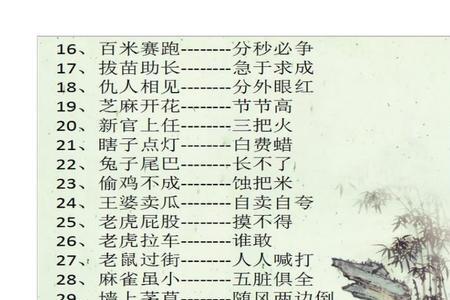 16、百米赛跑--------分秒必争
17、拔苗助长--------急于求成
18、仇人相见--------分外眼红
19、芝麻开花--------节节高
20、新官上任--------三把火
21、瞎子点灯--------白费蜡
22、兔子尾巴--------长不了
23、偷鸡不成--------蚀把米
24、王婆卖瓜--------自卖自夸
25、老虎屁股--------摸不得
26、老虎拉车--------谁敢
27、老鼠过街--------人人喊打
28、麻雀虽小--------五脏俱全
29、墙上茅草--------随风两边倒